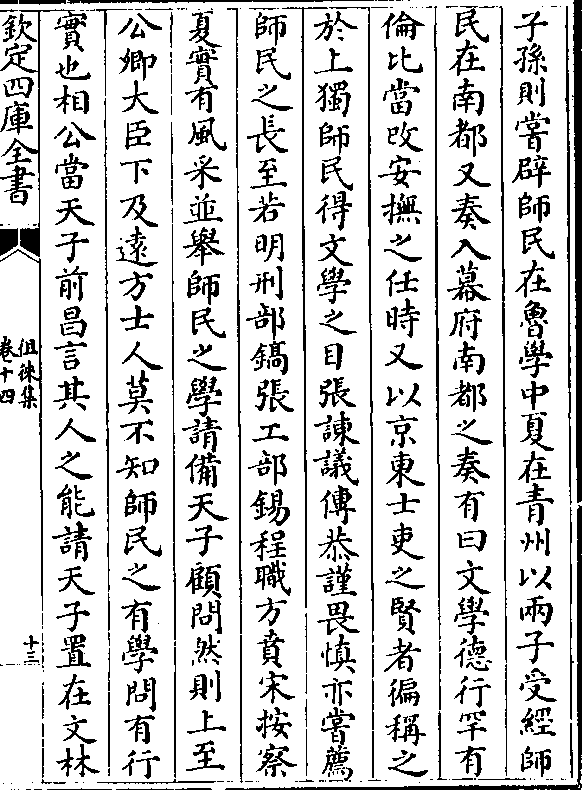 子孫則嘗辟師民在魯學中夏在青州以兩子受經師
民在南都又奏入幕府南都之奏有曰文學德行罕有
倫比當改安撫之任時又以京東士吏之賢者徧稱之
於上獨師民得文學之目張諫議傅恭謹畏慎亦嘗薦
師民之長至若明刑部鎬張工部錫程職方賁宋按察
夏實有風采並舉師民之學請備天子顧問然則上至
公卿大臣下及遠方士人莫不知師民之有學問有行
實也相公當天子前昌言其人之能請天子置在文林
欽定四庫全書
徂徠集
卷十四
十三